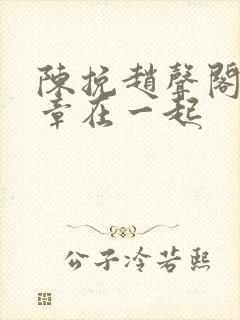 陳挽趙聲閣
章在一起
公子冷若熙